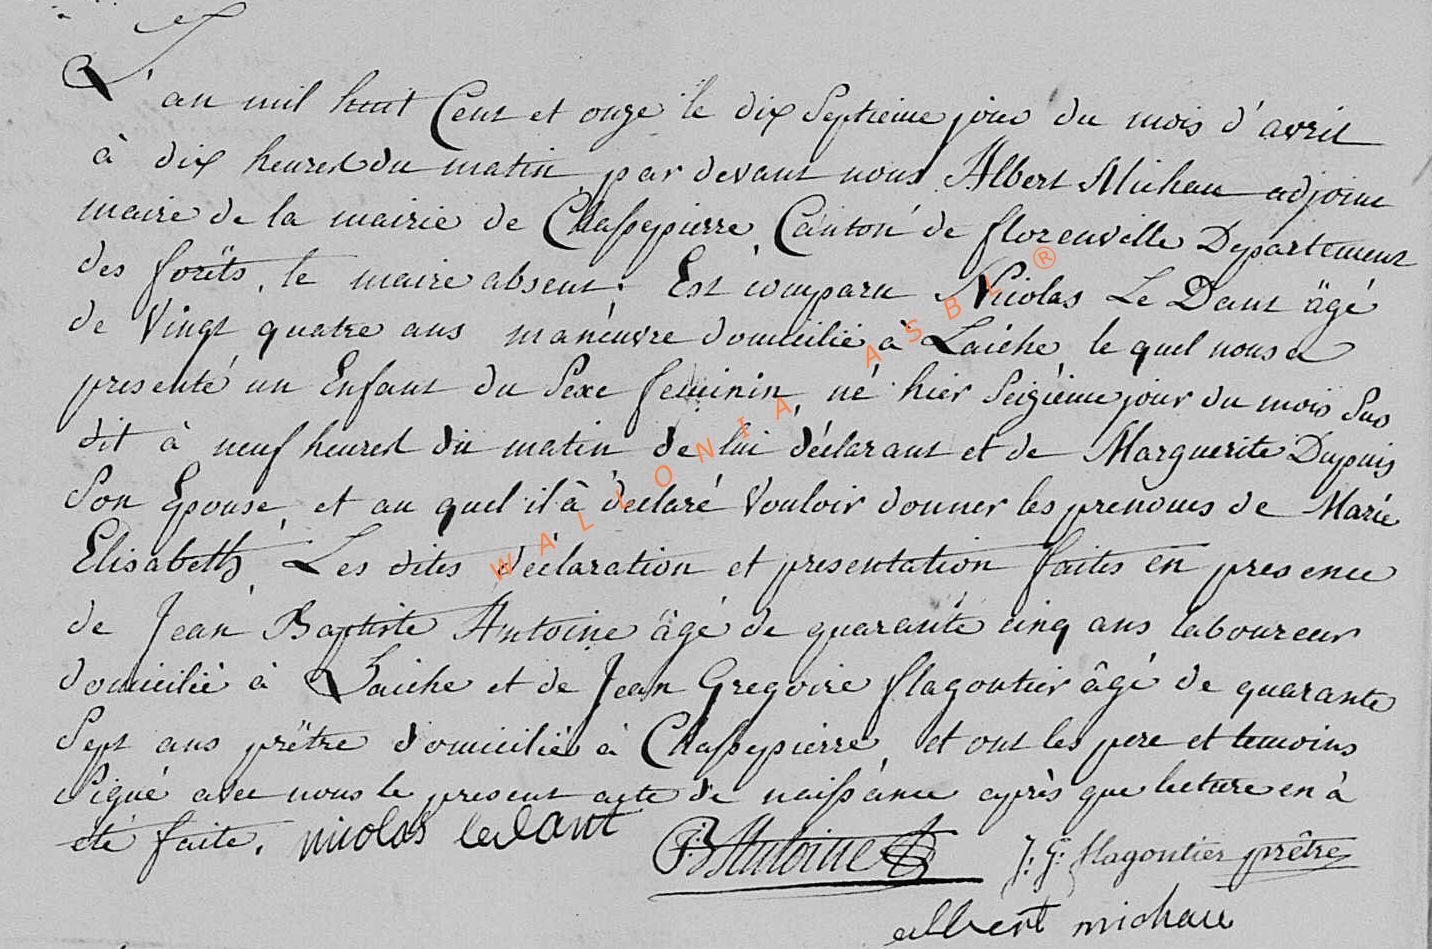 L'an mil huit Cent et onze le dix Septieme jour du mois d'avril
à dix heures du matin par devant nous Albert Michau adjoint
maire de la mairie de Chassepierre Canton de florenville Departement
des forêts, le maire absent. Est comparu Nicolas Le Dant âgé
de Vingt quatre ans manœuvre domicilié à Laiche le quel nous a
presenté un Enfant du Sexe feminin, né hier Seizième jour du mois Sus
dit à neuf heures du matin de lui déclarant et de Marguerite Dupuis
Son Epouse, et au quel il à declaré Vouloir donner les prenoms de Marie
Elisabeth. Les dites déclaration et presentation faites en presence
de Jean Baptiste Antoine âgé de quarante cinq ans laboureur
domicilié à Laiche et de Jean Gregoire flagontier âgé de quarante
Sept ans prêtre domicilié à Chassepierre, et ont les pere et temoins
Signé avec nous le present acte de naissance après que lecture en à
été faite. nicolas ledant
JB Antoine J: G: flagontier prêtre
albert michau
WALLONIA ASBL ®